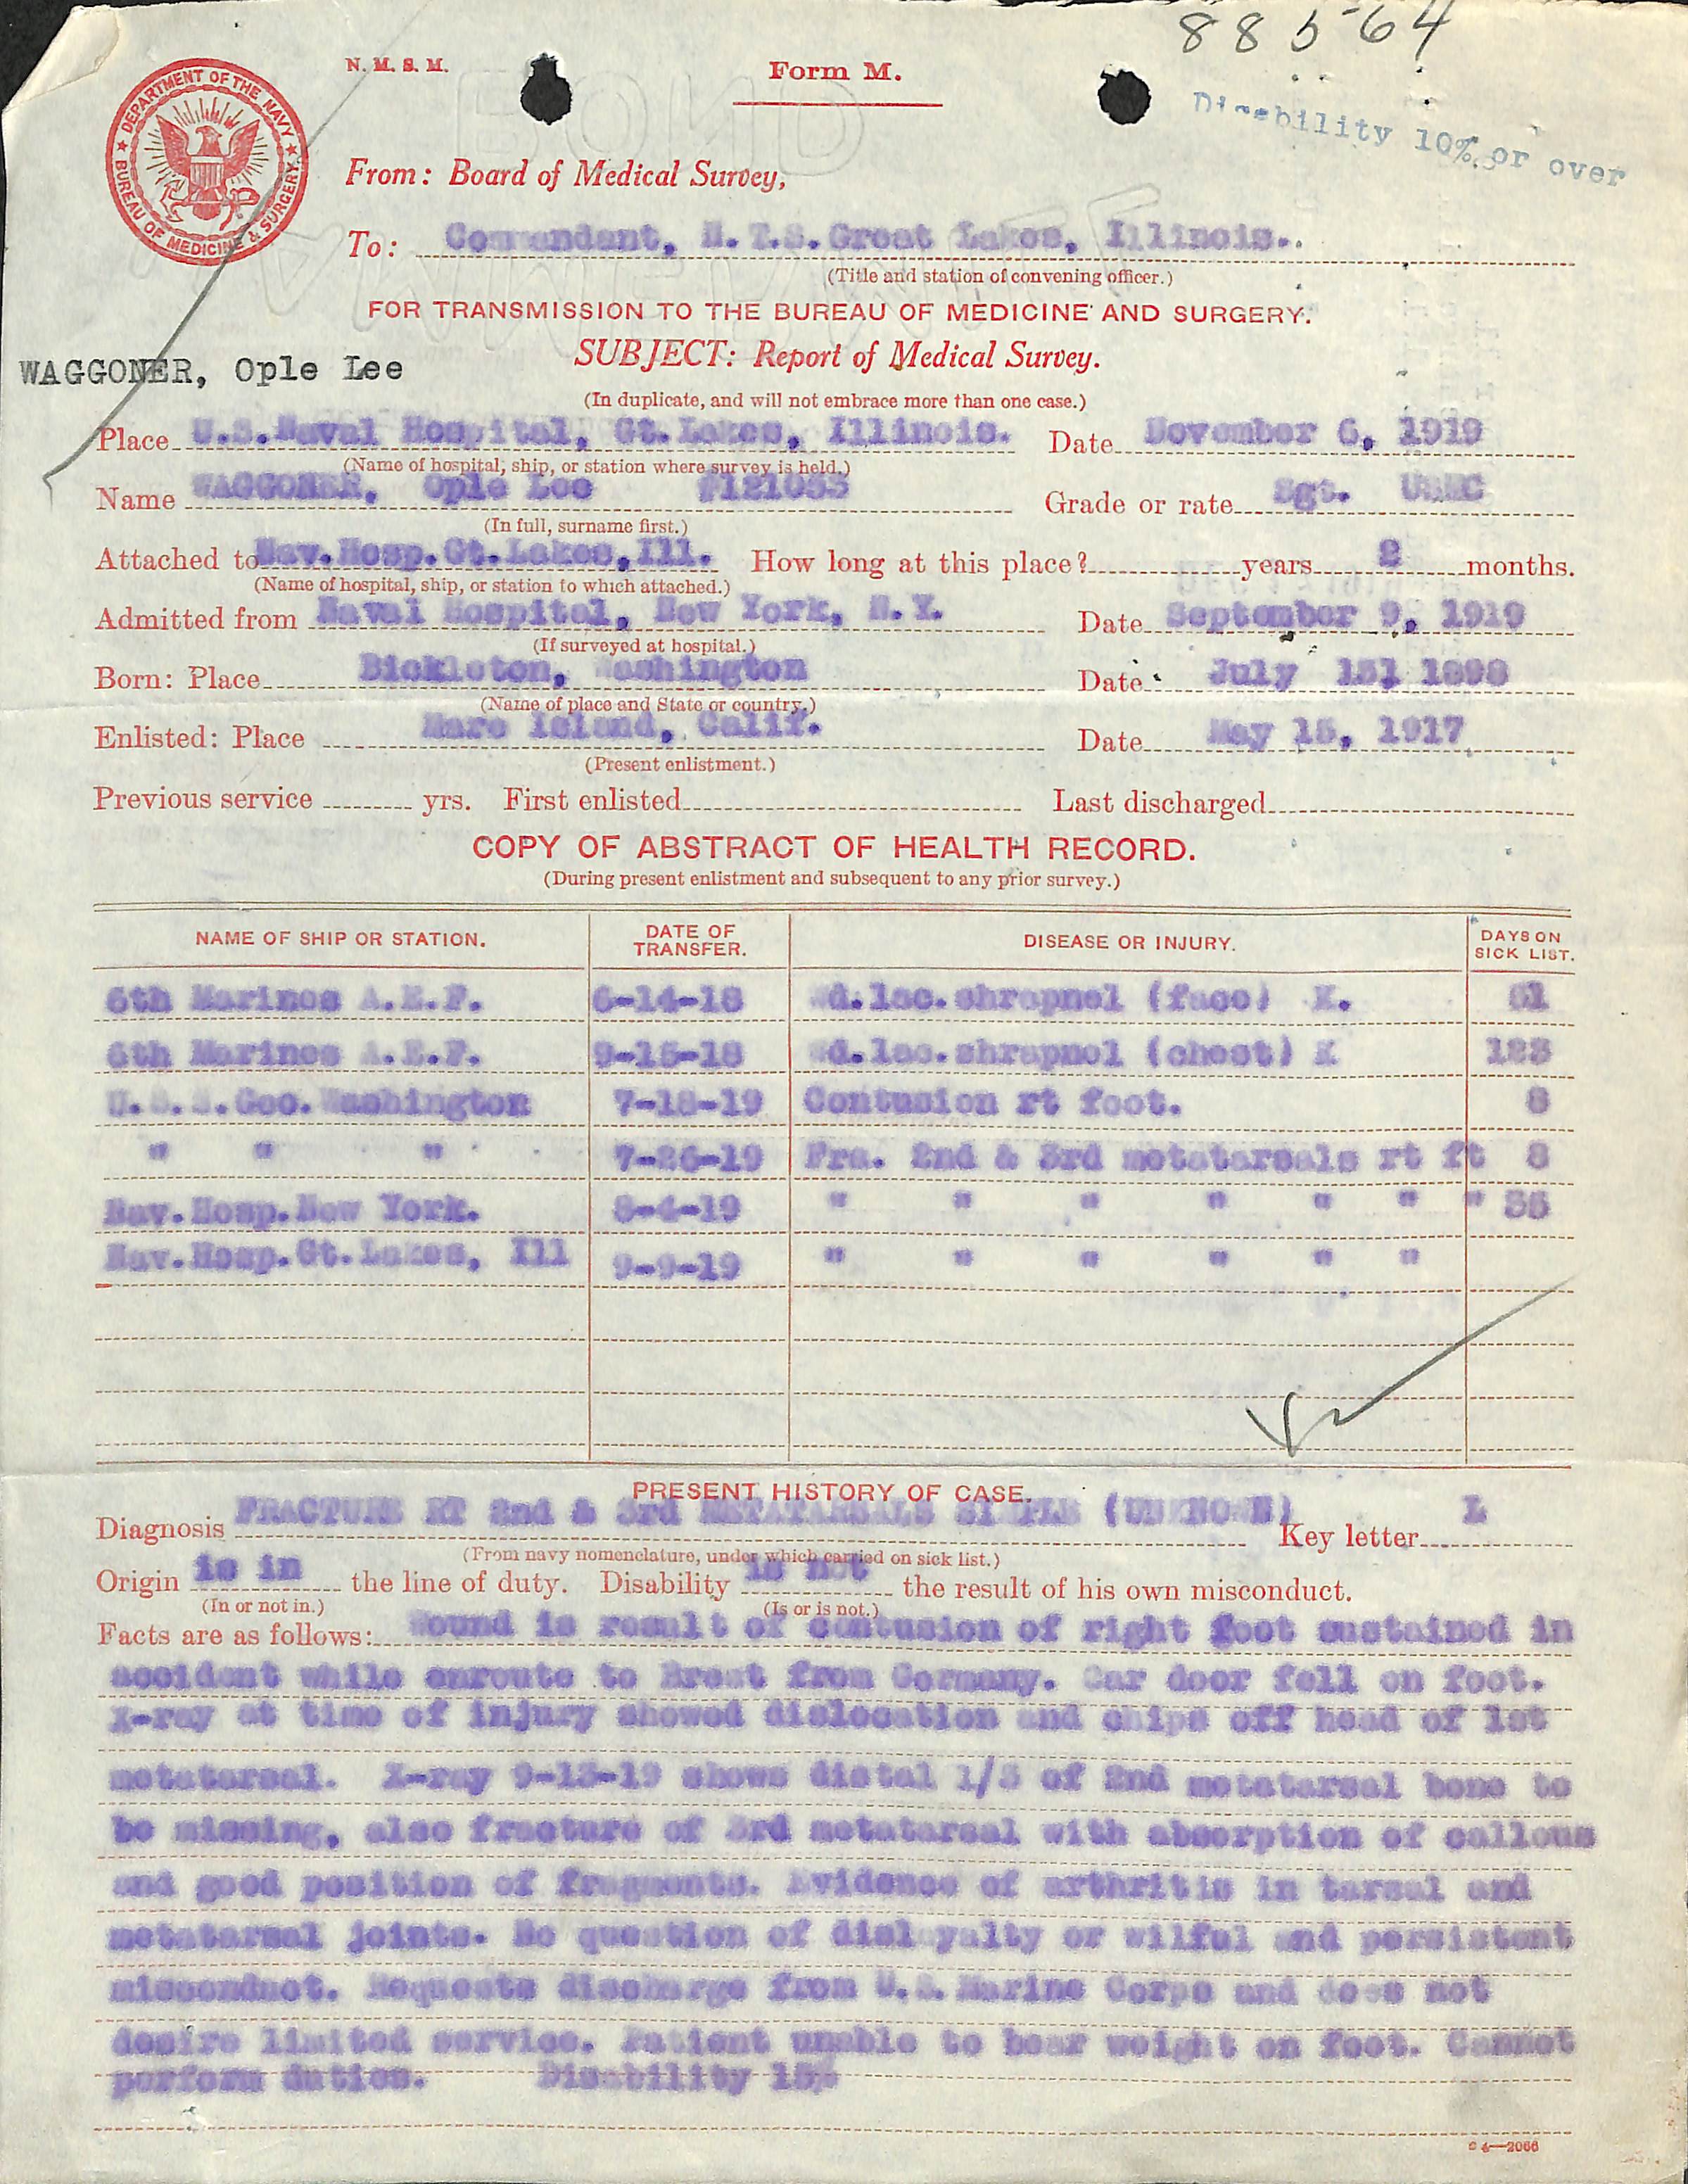 88564
N. M. S. M.
Form M.
Disability 10% or over
DEPARTMENT OF THE NAVY
BUREAU OF MEDICINE & SURGERY
From: Board of Medical Survey,
To: Commandant, N.T.S. Great Lakes, Illinois.
(Title and station of convening officer.)
FOR TRANSMISSION TO THE BUREAU OF MEDICINE AND SURGERY.
WAGGONER, Ople Lee
SUBJECT: Report of Medical Survey.
(In duplicate, and will not embrace more than one case.)
Place U.S.Naval Hospital, Gt.Lakes, Illinois. Date November 6, 1919
(Name of hospital, ship, or station where survey is held.)
Name WAGGONER, Ople Lee Grade or rate Sgt. USMC
(In full, surname first.)
Attached to Nav.Hosp.Gt.Lakes,Ill. How long at this place? years 2 months.
(Name of hospital, ship, or station to which attached.)
Admitted from Naval Hospital, New York, N.Y. Date September 9, 1919
(If surveyed at hospital.)
Born: Place Bickleton, Washington Date July
(Name of place and State or country.)
Enlisted: Place Mare Island, Calif. Date May 15, 1917
(Present enlistment.)
Previous service yrs. First enlisted Last discharged
COPY OF ABSTRACT OF HEALTH RECORD.
(During present enlistment and subsequent to any prior survey.)
NAME OF SHIP OR STATION. DATE OF TRANSFER. DISEASE OR INJURY. DAYS ON SICK LIST.
6th Marines A.E.F. 6-14-18 Wd.lac.shrapnel (face) K.
6th Marines A.E.F. 9-15-18 Wd.lac.shrapnel (chest) K 123
U.S.S.Geo.Washington 7-18-19 Contusion rt foot. 8
" " " 7-26-19 Fra. 2nd & 3rd metatarsals rt ft 8
Nav.Hosp.New York. 8-4-19 " " " " " " " 36
Nav.Hosp.Gt.Lakes, Ill 9-9-19 " " " " " "
PRESENT HISTORY OF CASE.
Diagnosis FRACTURE RT 2nd & 3rd METATARSALS SIMPLE (UNKNOWN) Key letter L
(From navy nomenclature, under which carried on sick list.)
Origin is in the line of duty. Disability is not the result of his own misconduct.
(In or not in.) (Is or is not.)
Facts are as follows: Wound is result of contusion of right foot sustained in
accident while enroute to Brest from Germany. Car door fell on foot.
X-ray at time of injury showed dislocation and chips off head of 1st
metatarsal. X-ray 9-13-19 shows distal 1/3 of 2nd metatarsal bone to
be missing, also fracture of 3rd metatarsal with absorption of callous
and good position of fragments. Evidence of arthritis in tarsal and
metatarsal joints. No question of disloyalty or wilful and persistent
misconduct. Requests discharge from U.S.Marine Corps and does not
desire limited service. Patient unable to bear weight on foot. Cannot
perform duties. Disability 15%